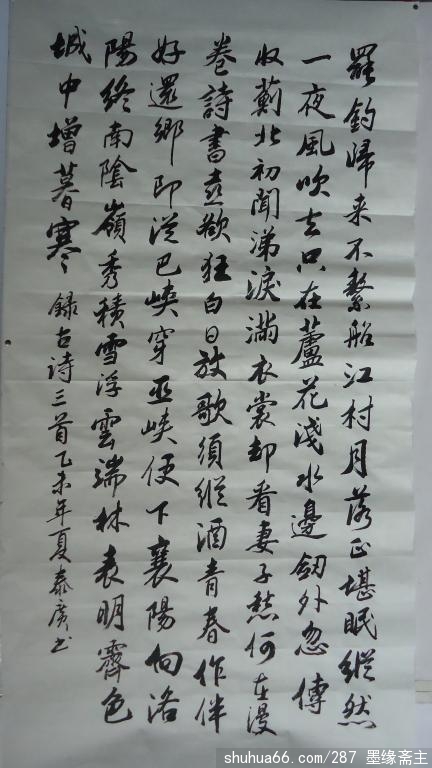 罷釣歸来不繫船江村月落正堪眠縱然
一夜風吹去只在蘆花淺水邊劔外忽傳
收薊北初聞涕淚滿衣裳却看妻子愁何在漫
卷詩書喜欲狂白日放歌須縱酒青春作伴
好還鄉即從巴峽穿巫峽便下襄陽向洛
陽終南陰嶺秀積雪浮雲端林表明霽色
城中增暮寒 錄古詩三首乙未年夏泰廣书
shuhua66.com/287 墨缘斋主